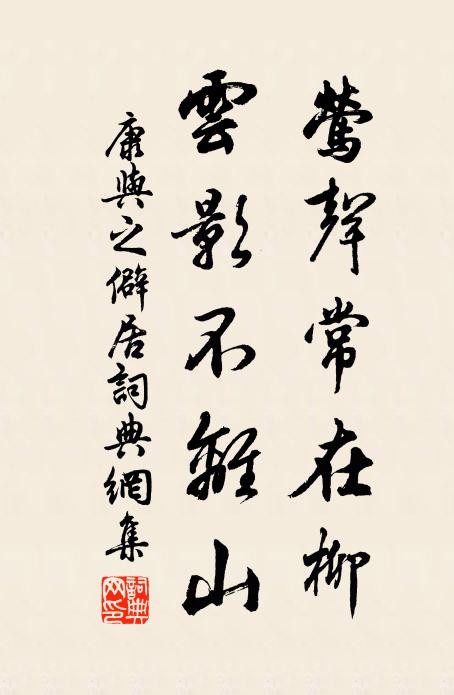 鶯聲常在柳
雲影不離山
康與之僻居詞典網集
詞典网印